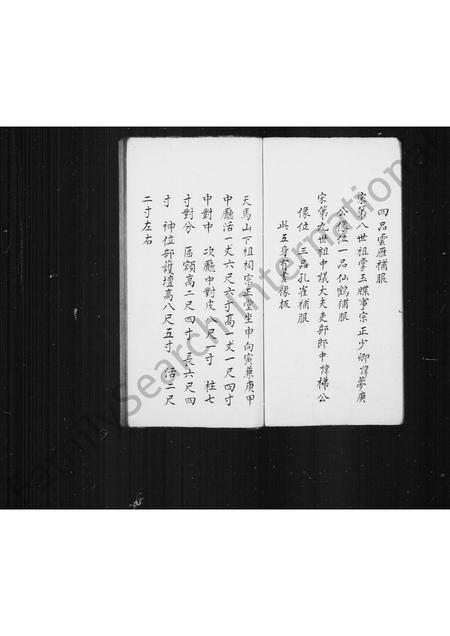 四品雲雁補服
宋第八世祖掌玉牒事宗正少卿諱夢庚
公像位一品仙鶴補服
宋第九世祖中議大夫吏部郎中諱梯公
像位 三品孔雀補服
此五身有畫像扳
天馬山下祖祠宗正堂坐申向寅兼庚甲
中廳活一丈六尺六寸高一丈一尺四寸
中對中 次廳中對皮八尺一寸 柱七
寸對分 區額高二尺四寸長六尺四
寸 神位部護壇高八尺五寸 活二尺
二寸左右
FamilySearch International